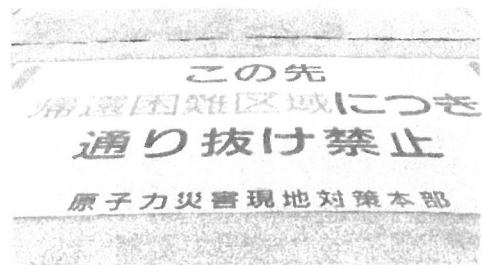 この先
帰還困難区域につき
通り抜け禁止
原子力災害現地対策本部